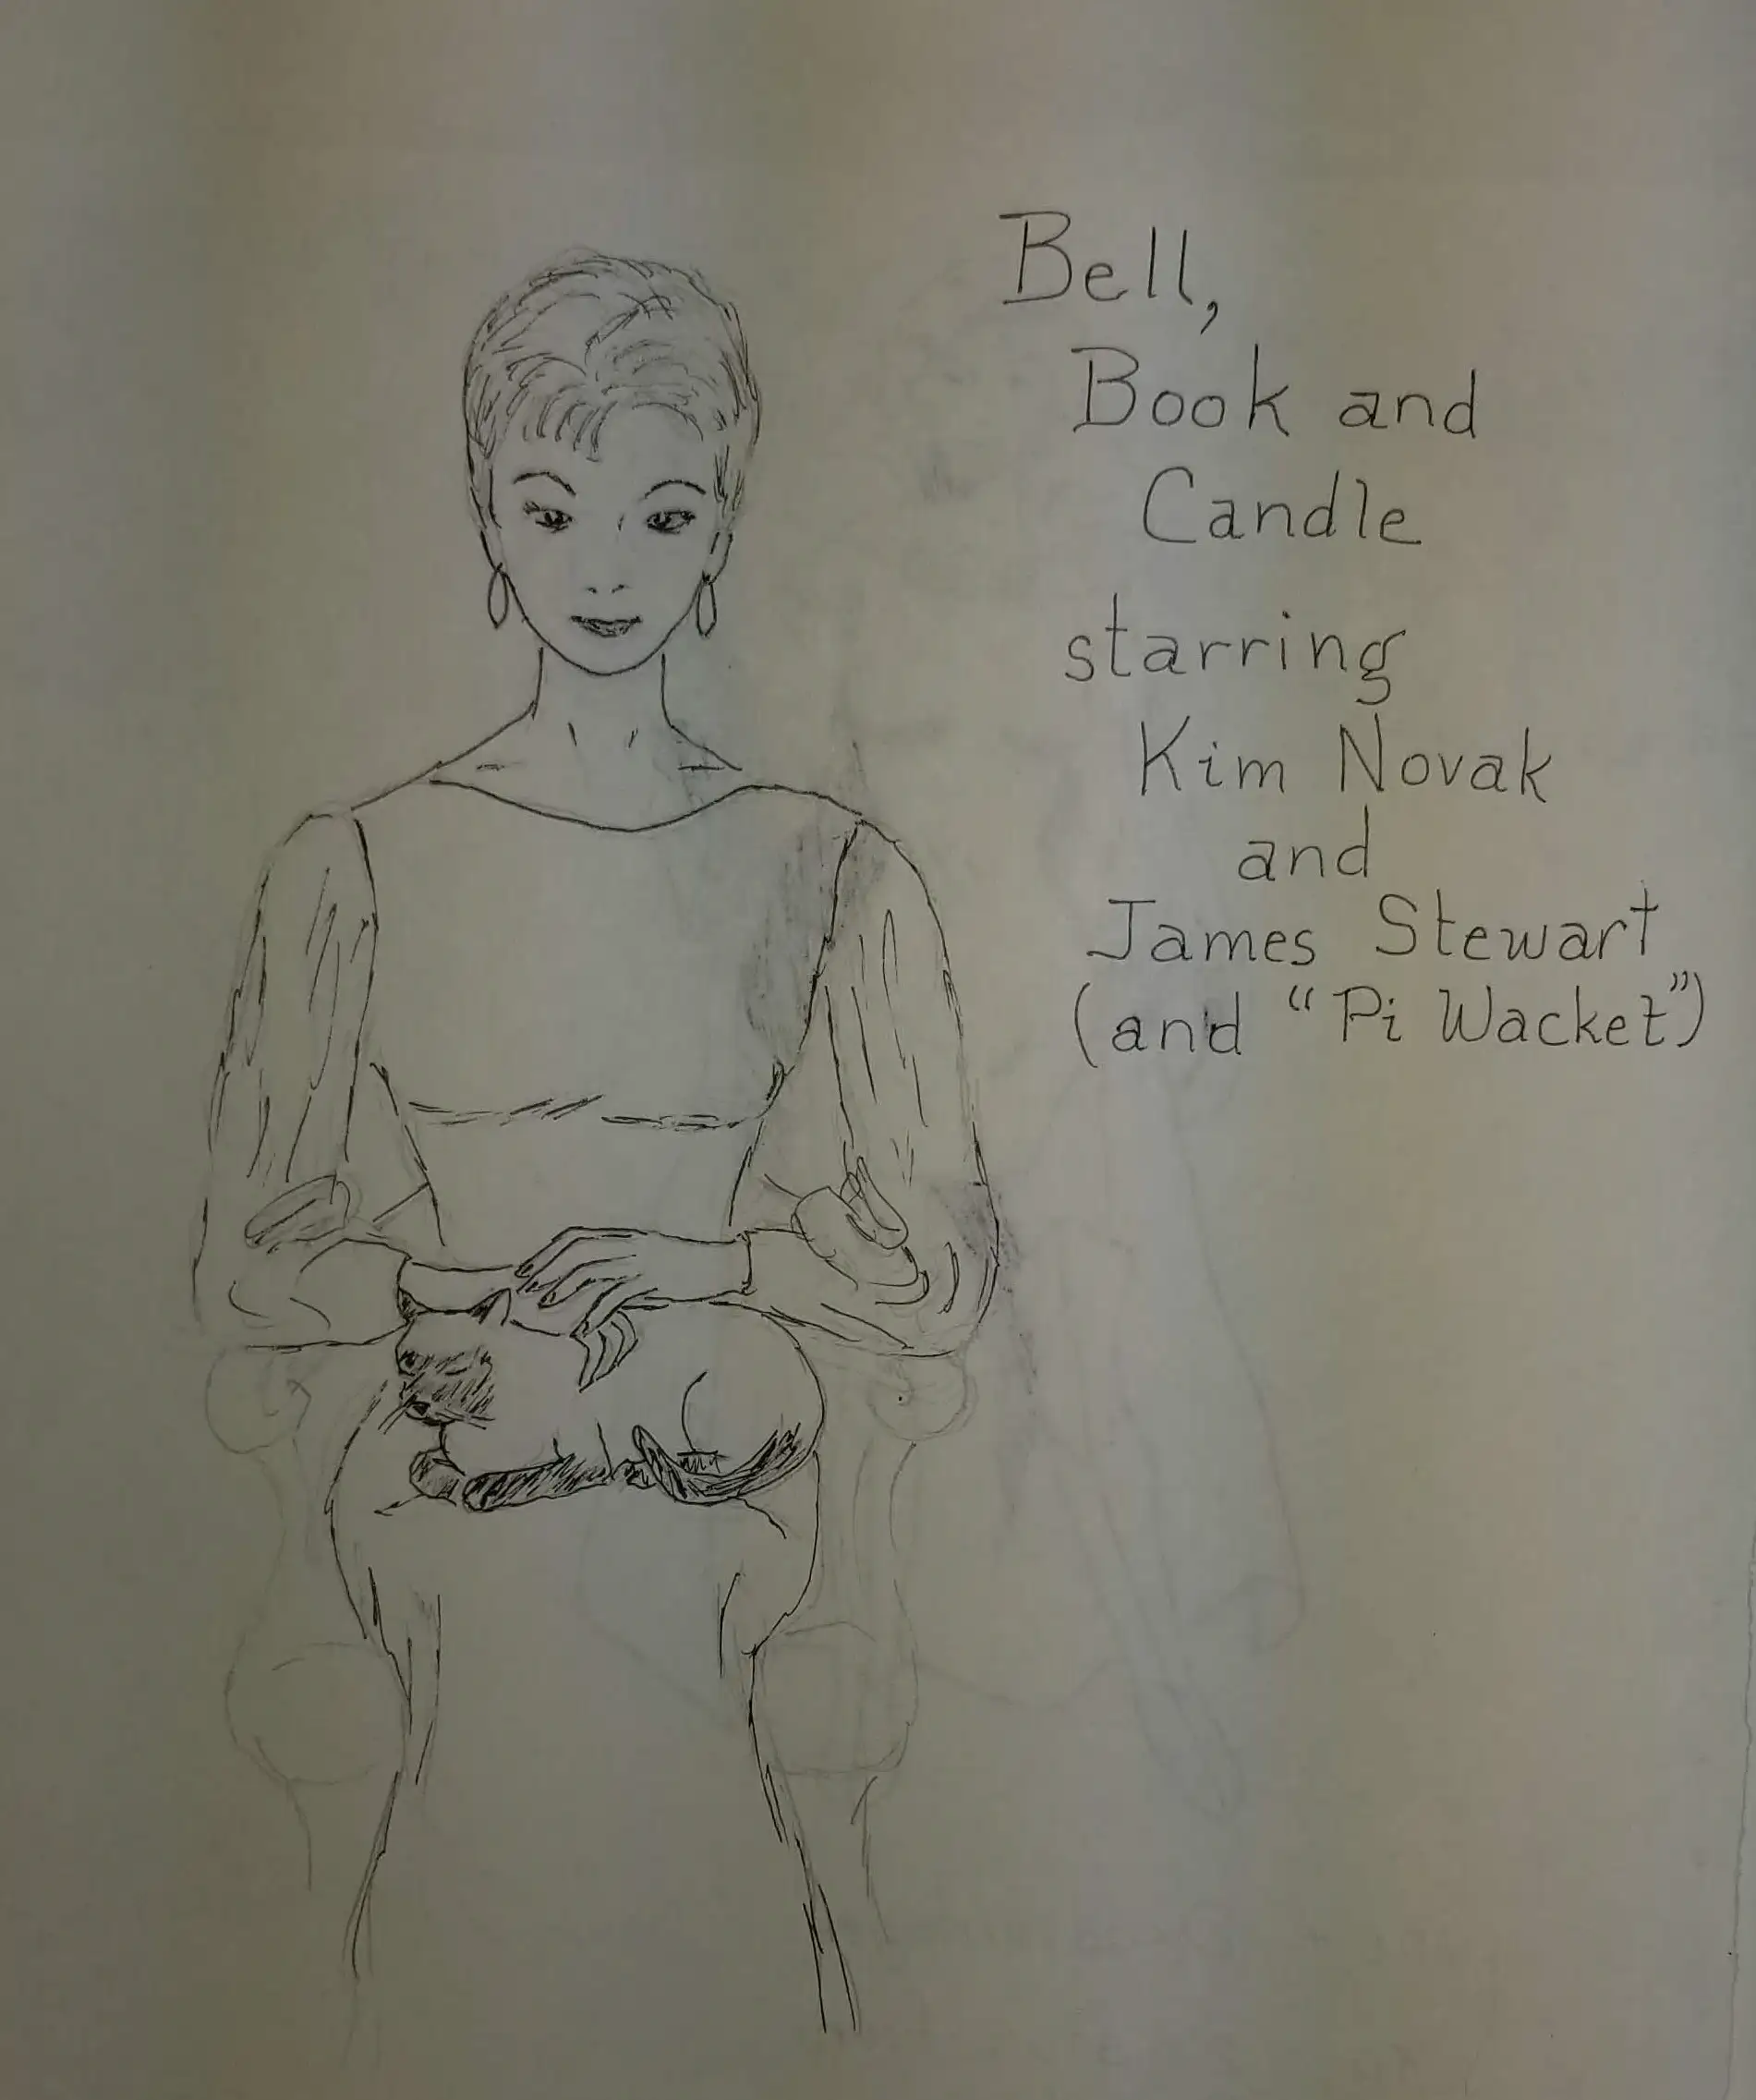 Bell,
Book and
Candle
starring
Kim Novak
and
James Stewart
(and “Pi Wacket”)